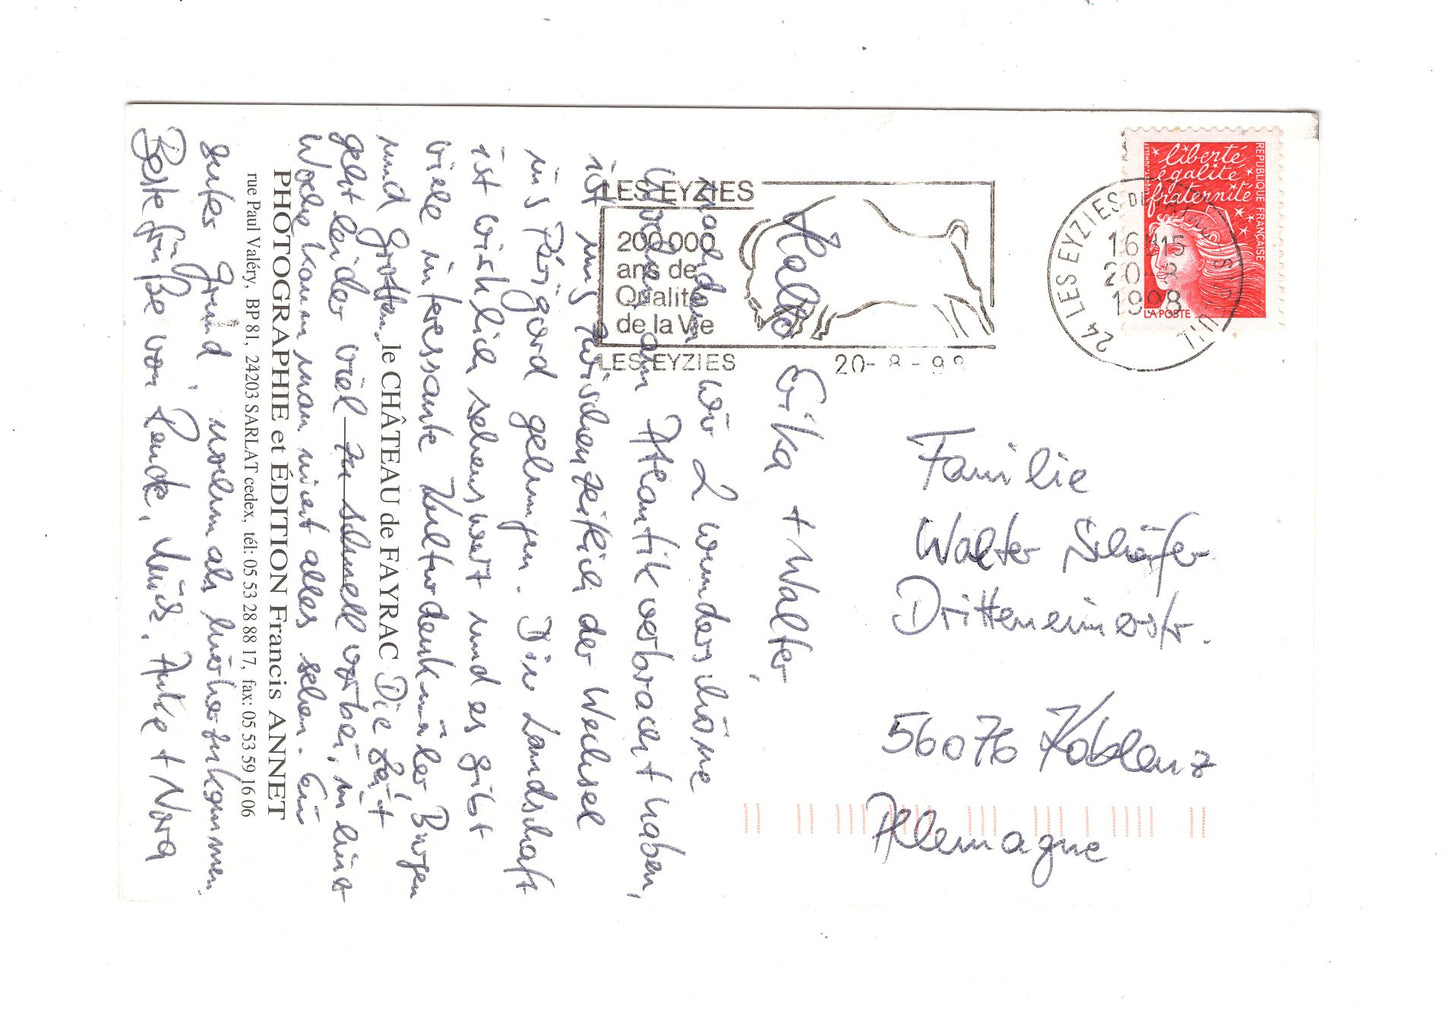 Hallo Erika + Walter,
nachdem wir 2 wunderschöne
Wochen am Atlantik verbracht haben,
ist uns zwischenzeitlich der Wechsel
ins Périgord gelungen. Die Landschaft
ist wirklich sehenswert und es gibt
viele interessante Kulturdenkmäler, Burgen
und Grotten. Die Zeit
geht leider viel zu schnell vorbei, in einer
Woche kann man nicht alles sehen. Ein
guter Grund, nochmals hierherzukommen.
Beste Grüße von Anke + Nora
le CHÂTEAU de FAYRAC
PHOTOGRAPHIE et ÉDITION Francis ANNET
rue Paul Valéry, BP 81, 24203 SARLAT cedex, tél: 05 53 28 88 17, fax: 05 53 59 16 06
LES EYZIES
200 000
ans de
Qualité
de la Vie
LES EYZIES 20-8-98
24 LES EYZIES DE
16 H 15
20-8
1998
liberté
égalité
fraternité
REPUBLIQUE FRANÇAISE
LA POSTE
Familie
Walter Schäfer
Dritteneimerstr.
56076 Koblenz
Allemagne